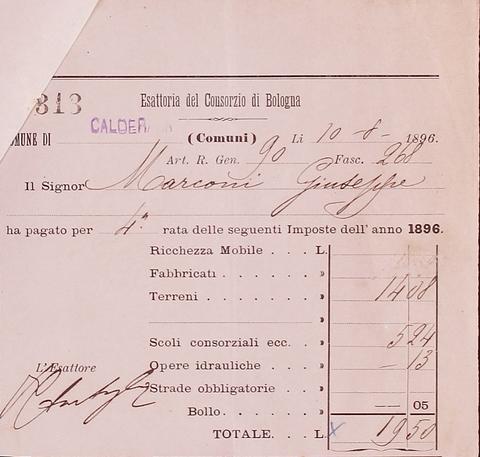 313
Esattoria del Consorzio di Bologna
MUNE DI CALDERARA (Comuni) Li 10-8-1896.
Art. R. Gen. 90 Fasc. 268
Il Signor Marconi Giuseppe
ha pagato per 4ª rata delle seguenti Imposte dell'anno 1896.
Ricchezza Mobile . . . L.
Fabbricati. . . . . . . »
Terreni . . . . . . . . » 14 08
»
Scoli consorziali ecc. . » 5 24
L'Esattore Opere idrauliche . . . » — 13
Strade obbligatorie . . »
Bollo. . . . » — 05
TOTALE. . . L. 19 50